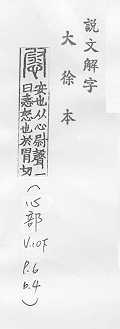 説文解字
大徐本
慰
安也从心尉聲一
曰恚怒也於胃切
(心部
V.10下
P.6
b.4)